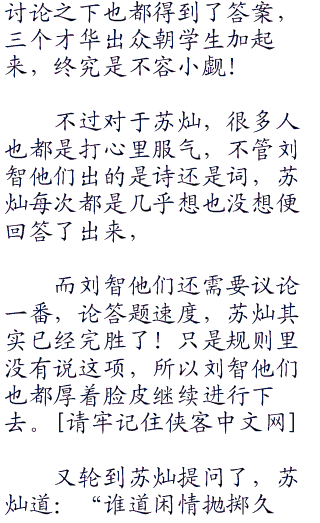 讨论之下也都得到了答案，
三个才华出众朝学生加起
来，终究是不容小觑！
不过对于苏灿，很多人
也都是打心里服气，不管刘
智他们出的是诗还是词，苏
灿每次都是几乎想也没想便
回答了出来，
而刘智他们还需要议论
一番，论答题速度，苏灿其
实已经完胜了！只是规则里
没有说这项，所以刘智他们
也都厚着脸皮继续进行下
去。[请牢记住侠客中文网]
又轮到苏灿提问了，苏
灿道：“谁道闲情抛掷久